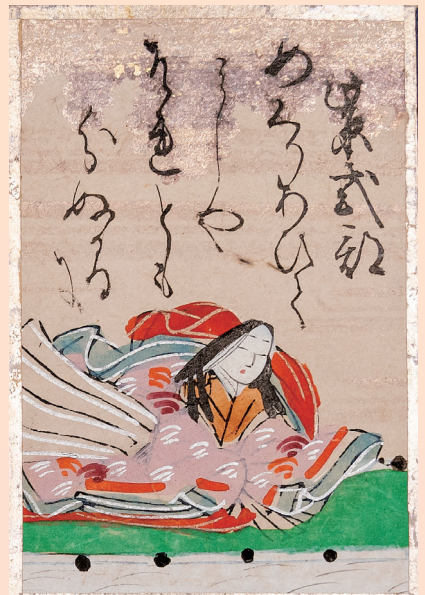 紫式部
めくりあひて
みしや
それとも
わかぬ